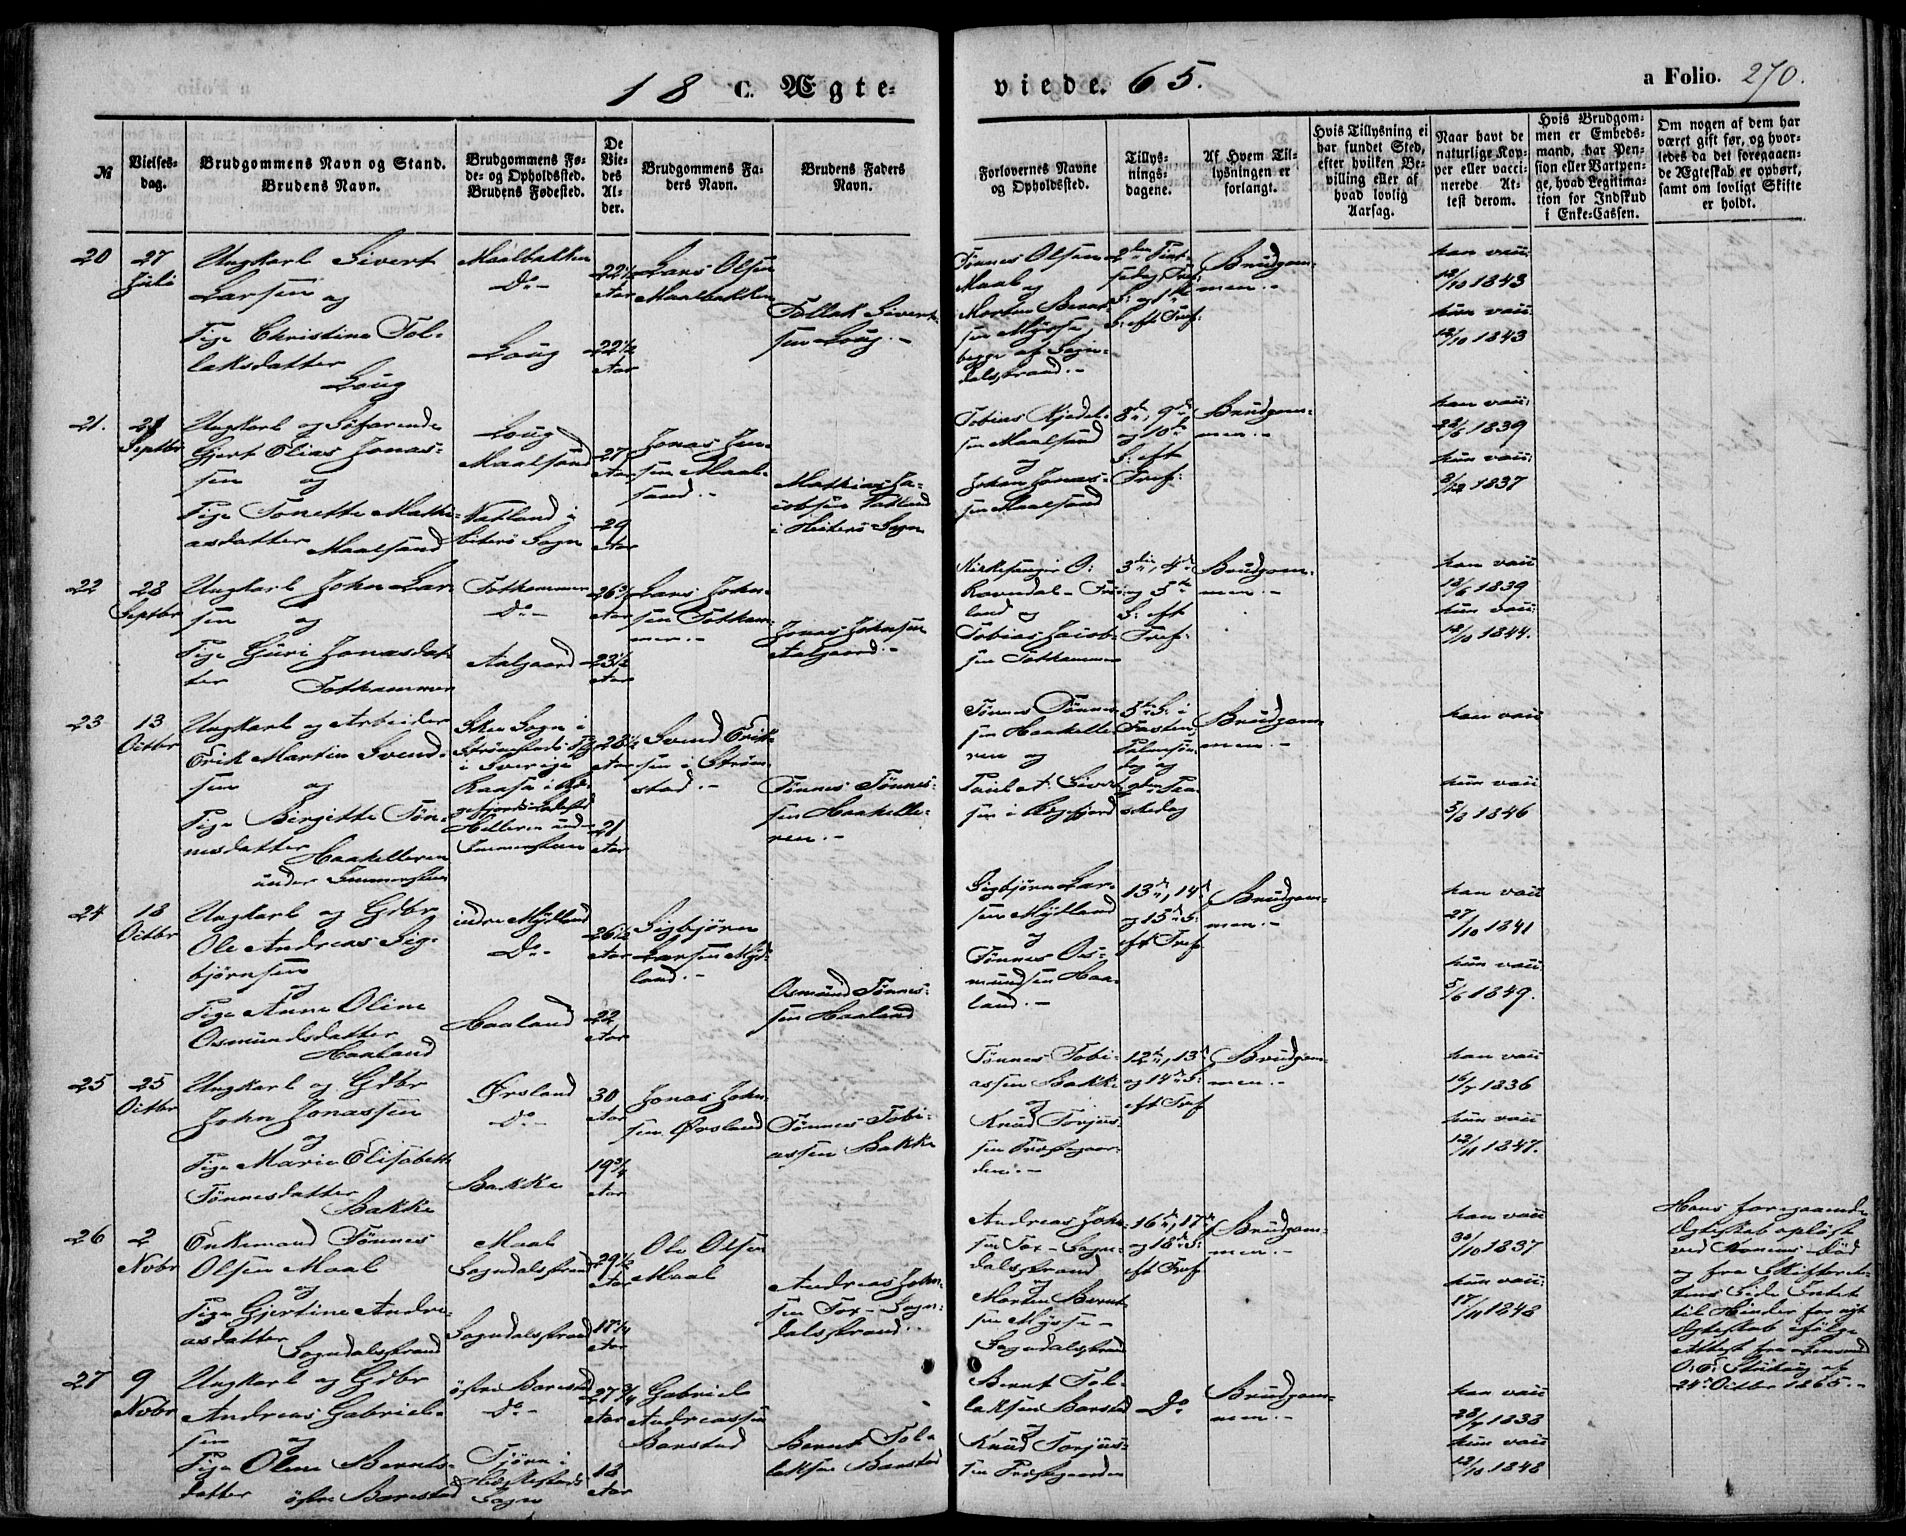 18 C. Ægte-
viede. 65.
a Folio. 270.
№
Vielses-
dag.
Brudgommens Navn og Stand.
Brudens Navn.
Brudgommens Fø-
de- og Opholdssted.
Brudens Fødested.
De
Vie-
des
Al-
der.
Brudgommens Fa-
ders Navn.
Brudens Faders
Navn.
Forlovernes Navne
og Opholdssted.
Tillys-
nings-
dagene.
Af Hvem Til-
lysningen er
forlangt.
Hvis Tillysning ei
har fundet Sted,
efter hvilken Be-
villing eller af
hvad lovlig
Aarsag.
Naar havt de
naturlige Kop-
per eller vacci-
nerede At-
test derom.
Hvis Brudgom-
men er Embeds-
mand, har Pen-
sion eller Vartpen-
ge, hvad Legitima-
tion for Indskud
i Enke-Cassen.
Om nogen af dem har
været gift før, og hvor-
ledes da det foregaaen-
de Ægteskab er ophørt,
samt om lovligt Skifte
er holdt.
20
27
Juli
Ungkarl Sivert
Larsen
og
Pige Christine Tol-
laksdatter
Loug
Maalbakken
Do-
Loug
22½
Aar
22½
Aar
Lars Olsen
Maalbakken
Tollak Sivert-
sen Loug.-
Tønnes Olsen
Maal
og
Morten Bernt-
sen Mysse,
begge af Sogn-
dalsstrand.-
2den Pint-
sedag, Tref:
S: og 1ste
S: eft Tref:
Brudgom-
men.-
han vacc:
12/10 1843
hun vacc:
12/10 1843
21.
21
Septbr
Ungkarl og Søfarende
Gjert Elias Jonas-
sen og
Pige Tonette Mathi-
asdatter
Maalsund
Loug
Maalsund
Natland i
Hiterø Sogn
27
Aar
29
Aar
Jonas Jen-
sen Maal-
sund.-
Mathias Ja-
cobsen Natland
i Hiterø Sogn
Tobias Kjedel-
sen Maalsund
og
Johan Jonas-
sen Maalsund
8de, 9de
og 10de
S: eft
Tref:
Brudgom-
men.-
han vacc:
28/6 1839
hun vacc:
2/12 1837
22
28
Septbr
Ungkarl John Lar-
sen og
Pige Guri Jonasdat-
ter
Tothammer
Tothammer
Do-
Aalgaard
26¾
Aar
23½
Aar
Lars John-
sen Totham-
mer.-
Jonas Johnsen
Aalgaard.-
Kirkesanger O:
Ravndal-
land og
Tobias Jacob-
sen Tothammer
3die, 4de
og 5te
S: eft
Tref:
Brudgom-
men.-
han vacc
12/6 1839
hun vacc:
12/10 1844.
23
13
Octbr
Ungkarl og Arbeider
Erik Martin Svend-
sen og
Pige Birgitte Tøn-
nesdatter
Haakelleren
under Immerstein
Skee Sogn i
i Sverige
Helleren und-
28½
Aar
21
Aar
Svend Erik-
sen i Strøm-
stad.-
Tønnes Tønnes-
sen Haakelle-
ren.-
Tønnes Tønnes-
sen Haakelle-
ren og
Sivert-
sen i Regefjord
5te S: i
Fasten,
Palmesøn-
dag og
2den Paa-
skedag
Brudgom-
men.-
han vacc
hun vacc
5/8 1846
24
18
Octbr
Ungkarl og Gdbr
Ole Andreas Sig-
bjørnsen
og
Pige Anne Oline
Osmundsdatter
Haaland
indre Mydland
Do-
Haaland
26½
Aar
22
Aar
Sigbjørn
Larsen Myd-
land.-
Osmund Tønnes-
sen Haaland
Sigbjørn Lar-
sen Mydland
og
Tønnes Os-
mundsen Haa-
land.-
13de, 14de
og 15de S:
eft Tref
Brudgom-
men.-
han vacc
27/10 1841
hun vacc:
5/6 1849.
25
25
Octbr
Ungkarl og Gdbr
John Jonassen
og
Pige Marie Elisabeth
Tønnesdatter
Bakke
Ørsland
Do-
Bakke
30
Aar
19¾
Aar
Jonas John-
sen Ørsland
Tønnes Tobi-
assen Bakke
Tønnes Tobi-
assen Bakke
og
Knud Torjus-
sen Præstegaar-
den.-
12te, 13de
og 14de S:
eft Tref
Brudgom-
men.-
han vacc
16/7 1836
hun vacc
12/11 1847.
26
2
Novbr
Enkemand Tønnes
Olsen Maal
og
Pige Gjertine Andre-
asdatter
Sogndalsstrand
Maal
Sogndalsstrand
Sogndalsstrand
29½
Aar
17¼
Aar
Ole Olsen
Maal
Andreas John-
sen Tox- Sogn-
dalsstrand.
Andreas John-
sen Tox- Sogn-
dalsstrand
og
Morten Bernt-
sen Mysse-
Sogndalsstrand
16de, 17de
og 18de S:
eft Tref
Brudgom-
men.-
han vacc
30/10 1837
hun vacc:
17/11 1848
Hans foregaaende
Ægteskab opløst
ved Konens Død
og fra Skifteret-
tens Side Intet
til Hinder for nyt
Ægteskab ifølge
Attest fra Lensmd
24de Octbr 1865.-
27
9
Novbr
Ungkarl og Gdbr
Andreas Gabriel-
sen og
Pige Oline Bernts-
datter
østre Barstad
østre Barstad
Do-
Tjørn i
Sogn
27¾
Aar
18
Aar
Gabriel
Andreassen
Barstad
Bernt Tol-
laksen Barstad
Bernt Tol-
laksen Barstad
og
Knud Torjus-
sen Præstegaarden
Do
Brudgom-
men.-
han vacc
28/7 1838
hun vacc
12/10 1848